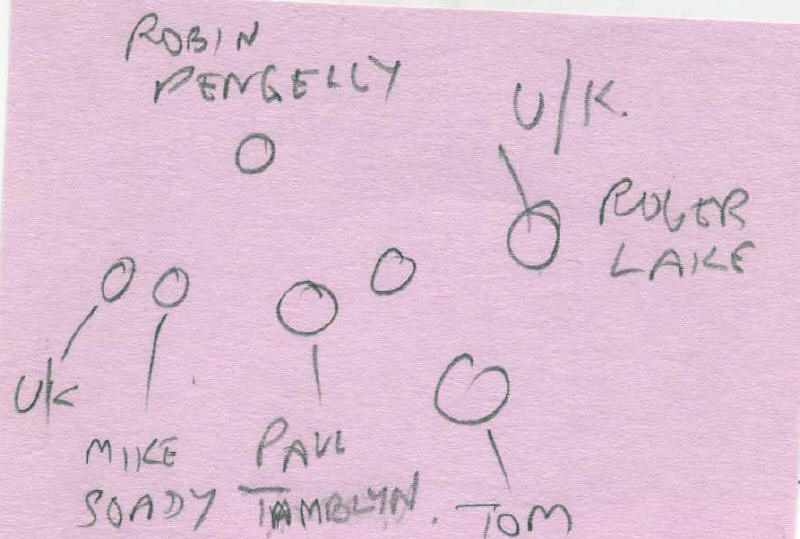 ROBIN
PENGELLY
U/K.
ROGER
LAKE
U/K
MIKE
SOADY
PAUL
TAMBLYN.
TOM